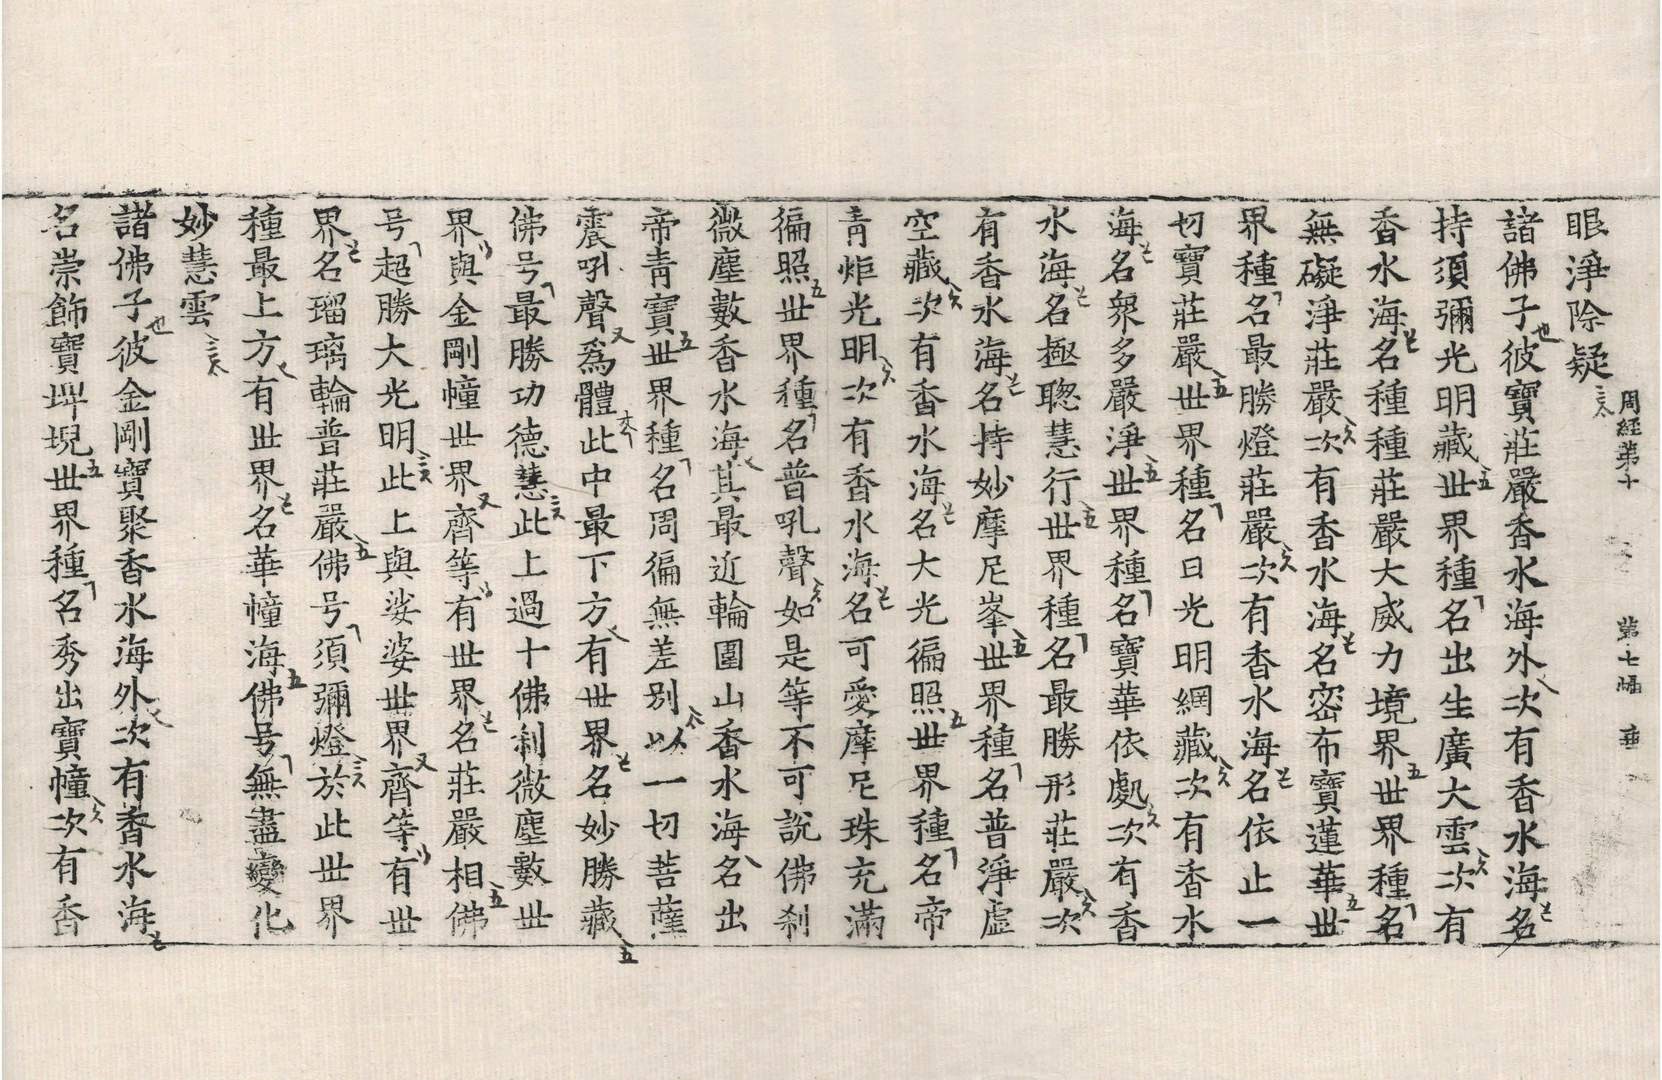 眼淨除疑
周経第十 第七幅 垂
諸佛子彼寶莊嚴香水海外次有香水海名
持須彌光明藏世界種名出生廣大雲次有
香水海名種種莊嚴大威力境界世界種名
無礙淨莊嚴次有香水海名密布寶蓮華世
界種名最勝燈莊嚴次有香水海名依止一
切寶莊嚴世界種名日光明網藏次有香水
海名衆多嚴淨世界種名寶華依處次有香
水海名極聦慧行世界種名最勝形莊嚴次
有香水海名持妙摩尼峯世界種名普淨虛
空藏次有香水海名大光徧照世界種名帝
青炬光明次有香水海名可愛摩尼珠充滿
徧照世界種名普吼聲如是等不可說佛刹
微塵數香水海其最近輪圍山香水海名出
帝青寶世界種名周徧無差别以一切菩薩
震吼聲爲體此中最下方有世界名妙勝藏
佛号最勝功德慧此上過十佛刹微塵數世
界與金剛幢世界齊等有世界名莊嚴相佛
号超勝大光明此上與娑婆世界齊等有世
界名瑠璃輪普莊嚴佛号須彌燈於此世界
種最上方有世界名華幢海佛号無盡變化
妙慧雲
諸佛子彼金剛寶聚香水海外次有香水海
名崇飾寶埤堄世界種名秀出寶幢次有香